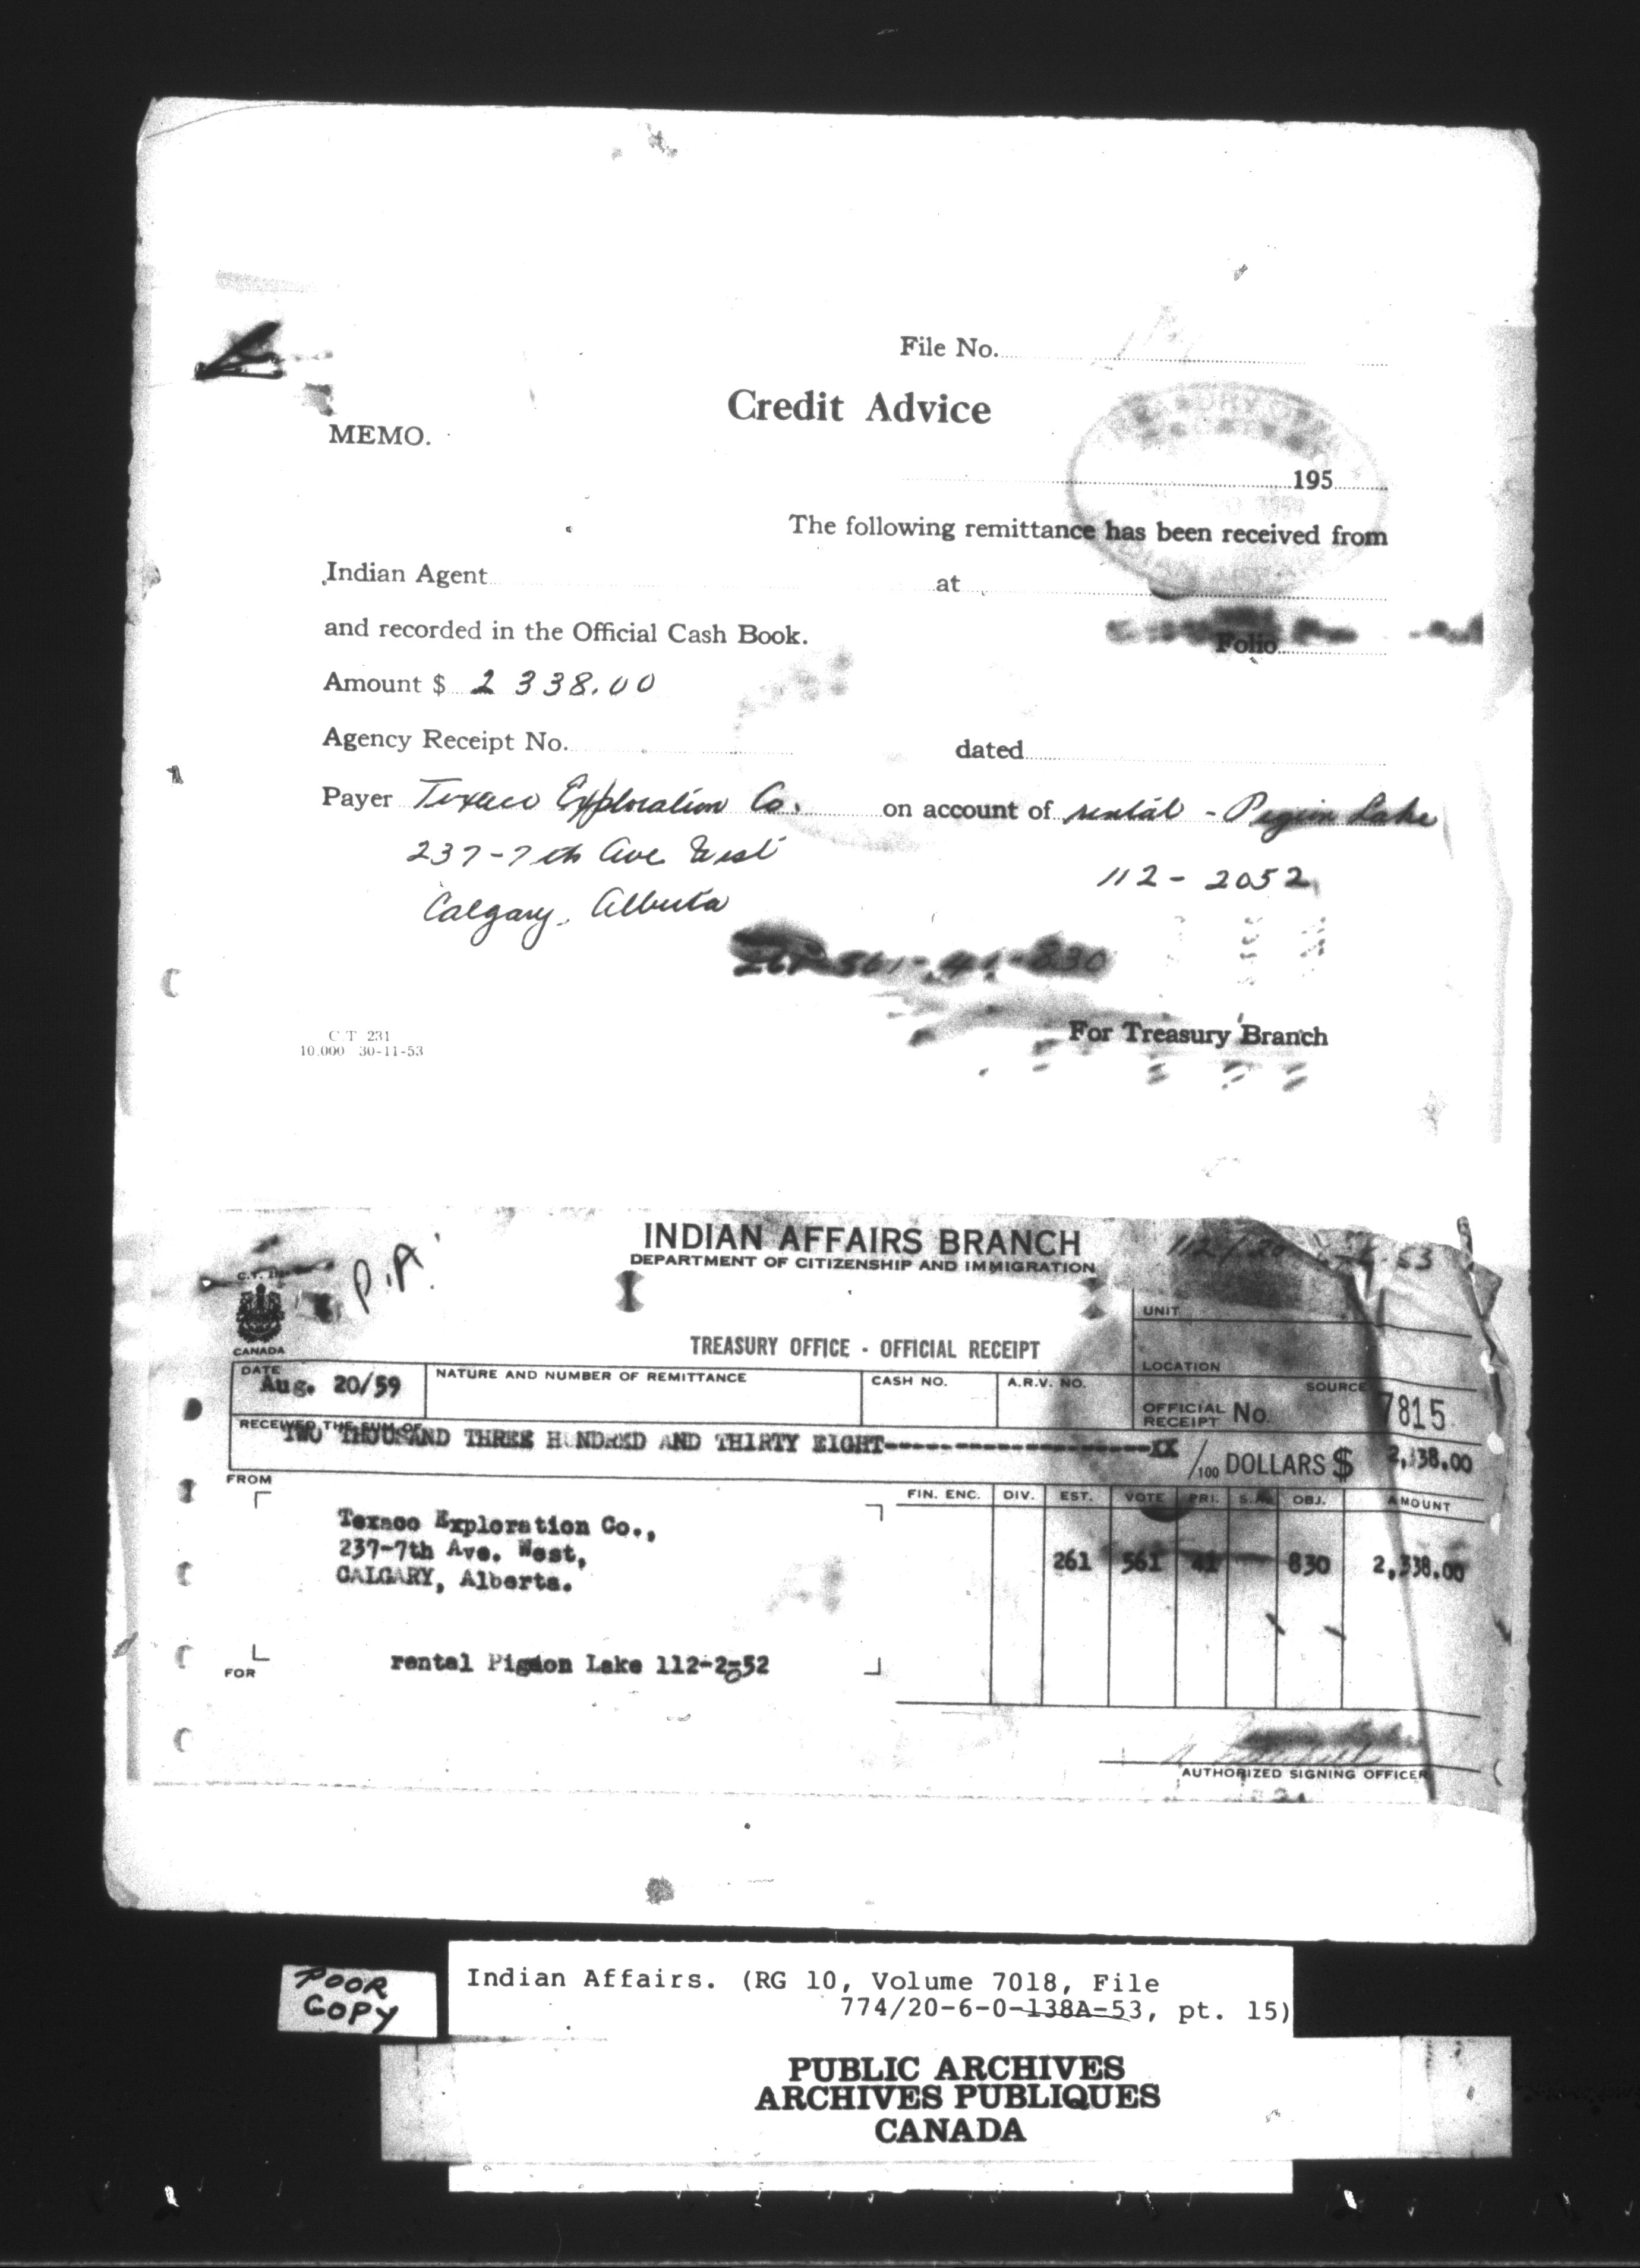 File No.
Credit Advice
MEMO.
195
The following remittance has been received from
Indian Agent at
and recorded in the Official Cash Book.
Folio
Amount $ 2 338.00
Agency Receipt No. dated
Payer Texaco Exploration Co. on account of rental - Pigeon Lake
237-7th Ave West 112-2052
Calgary, Alberta
261-561-41-830
For Treasury Branch
C.T 231
10,000 30-11-53
INDIAN AFFAIRS BRANCH
DEPARTMENT OF CITIZENSHIP AND IMMIGRATION
P.A.
CANADA
TREASURY OFFICE - OFFICIAL RECEIPT
UNIT
LOCATION
SOURCE
DATE Aug. 20/59
NATURE AND NUMBER OF REMITTANCE
CASH NO.
A.R.V. NO.
OFFICIAL RECEIPT No. 7815
RECEIVED THE SUM OF TWO THOUSAND THREE HUNDRED AND THIRTY EIGHT---------------------XX /100 DOLLARS $ 2,338.00
FROM
FIN. ENC. DIV. EST. VOTE PRI. S.A. OBJ. AMOUNT
Texaco Exploration Co.,
237-7th Ave. West,
CALGARY, Alberta.
261 561 41 — 830 2,338.00
FOR rental Pigeon Lake 112-2052
AUTHORIZED SIGNING OFFICER
POOR
COPY
Indian Affairs. (RG 10, Volume 7018, File
774/20-6-0-138A-53, pt. 15)
PUBLIC ARCHIVES
ARCHIVES PUBLIQUES
CANADA